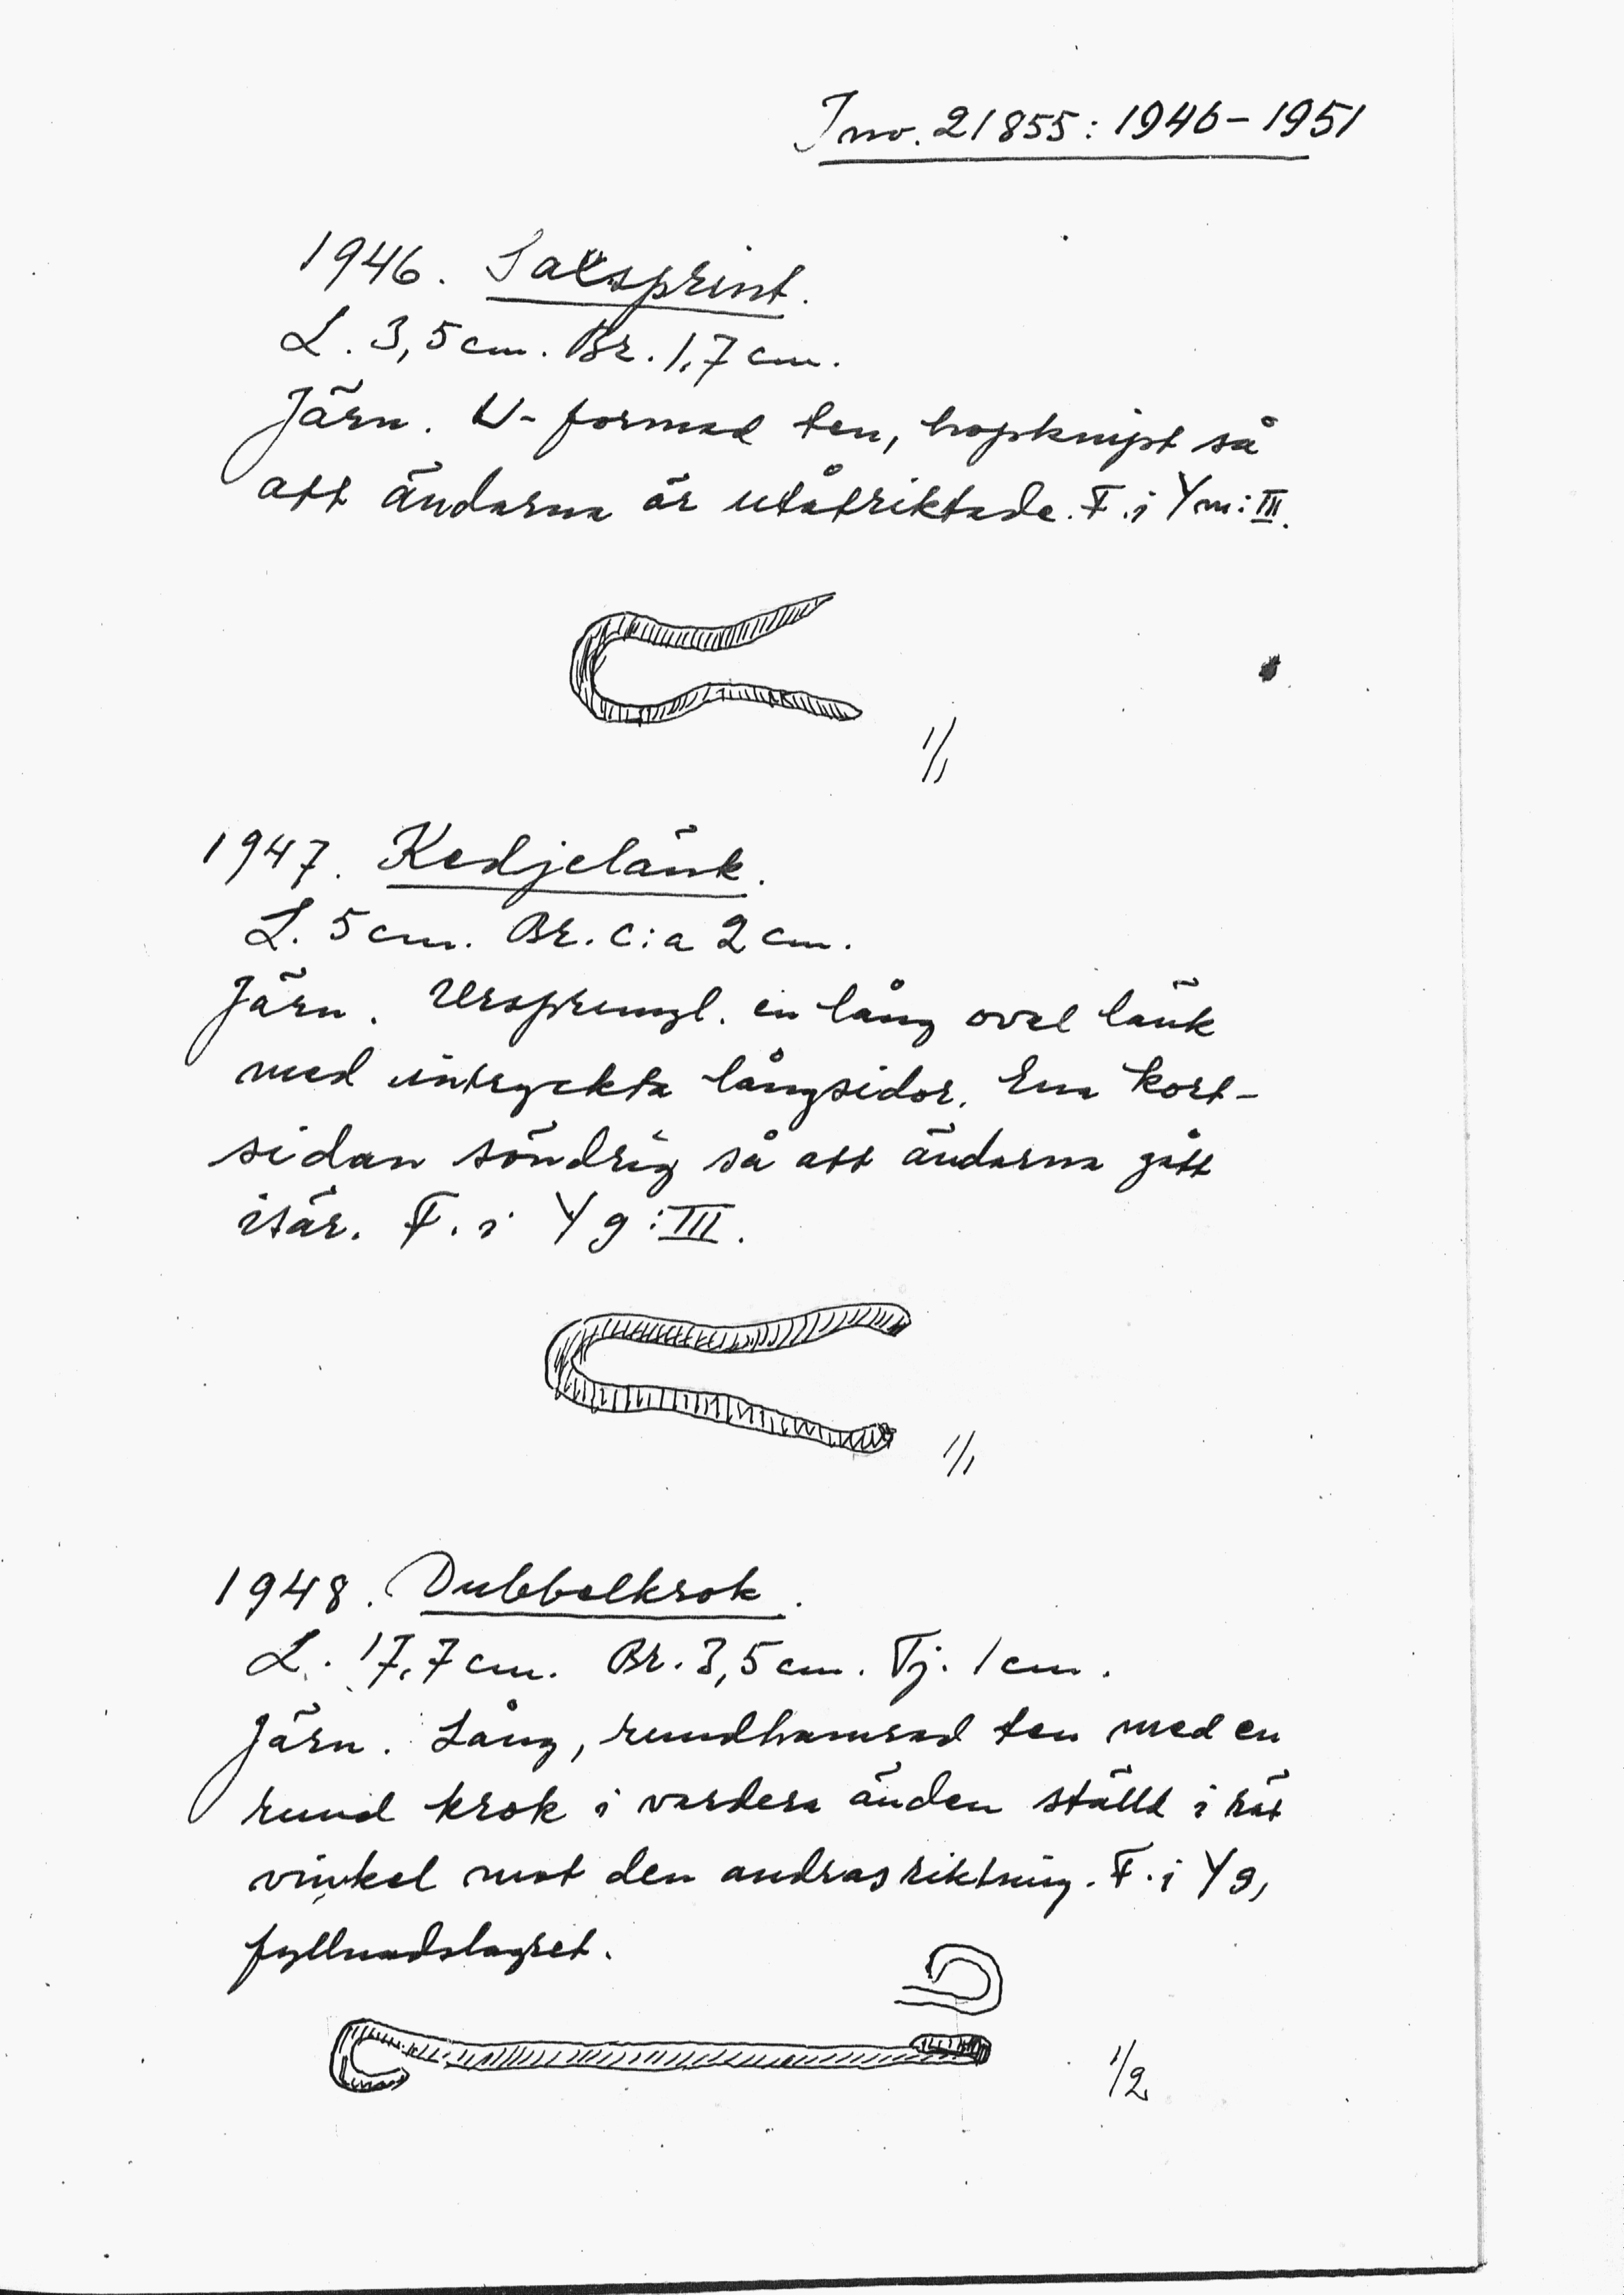 Inv. 21855: 1946-1951
1946. Saxsprint.
L. 3,5 cm. Br. 1,7 cm.
Järn. U-formad ten, hopknipt så
att ändarna är utåtriktade. F. i Ym: III.
1/1
1947. Kedjelänk.
L. 5 cm. Br. c:a 2 cm.
Järn. Ursprungl. en lång oval länk
med intryckta långsidor. Ena kort-
sidan söndrig så att ändarna gått
isär. F. i Yg: III.
1/1
1948. Dubbelkrok.
L. 17,7 cm. Br. 3,5 cm. Tj. 1 cm.
Järn. Lång, rundhamrad ten med en
rund krok i vardera änden ställd i rät
vinkel mot den andras riktning. F. i Yg,
fyllnadslagret.
1/2